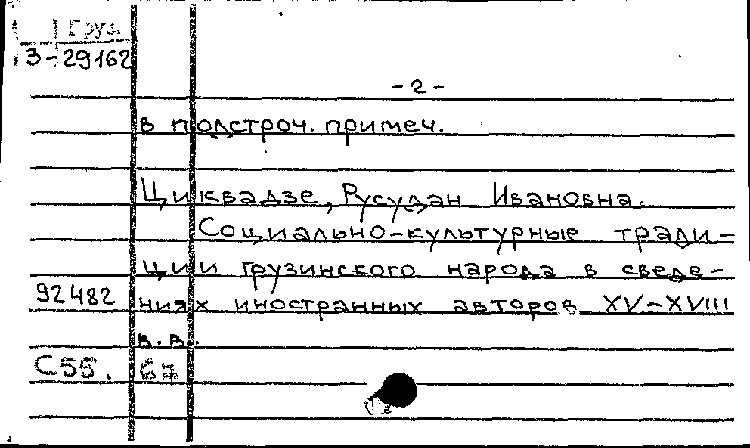 Груз.
3-29162
- 2 -
в подстроч. примеч.
Циквадзе, Русудан Ивановна.
Социально-культурные тради-
ции грузинского народа в сведе-
92482 ниях иностранных авторов XV-XVIII
в.в.
С55. 67